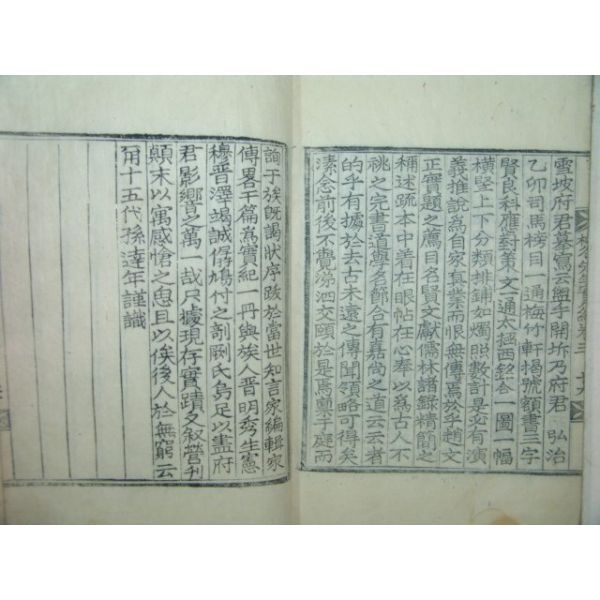 雪坡府君墓寫云盥手開坼乃府君 弘治
乙卯司馬榜目一通梅竹軒楊號額書三字
賢良科應對策文一通太極西銘合一圖一幅
橫竪上下分類排鋪如燭照數計是必有演
義推說爲自家有業而恨無傳焉於趙文
正實題之薦目名賢文獻儒林諸錄精簡之
稱述疏本中着在眼帖在心奉以爲古人不
祧之完書道學名節合有嘉尚之道云云者
的乎有據於去古未遠之傳聞領略可得矣
溸念前後不覺涕泗交頤於是焉稟于庭而
詢于族旣謁狀序跋於當世知言家編輯家
傳畧干篇爲實紀一冊與族人晋明秀生憲
穆晋澤竭誠得鳩付之剞劂氏烏足以盡府
君影響之萬一哉只據現存實蹟叉叙營刊
顚末以寓感愴之思且以俟後人於無窮云
爾十五代孫達年謹識